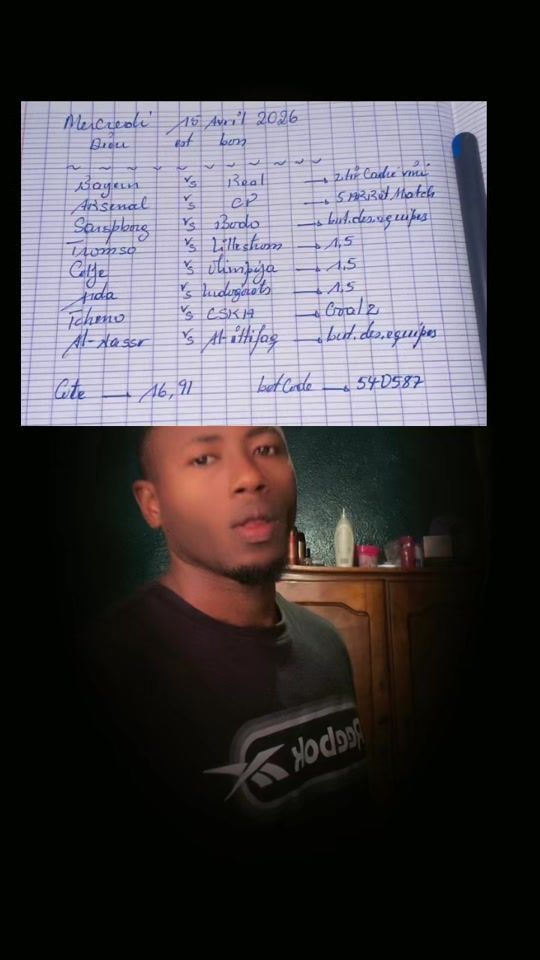 Mercredi 15 Avril 2026
Dieu est bon
Bayern vs Real →
Arsenal vs CP → Match
Sarspborg vs Bodo → but.des.equipes
Tromso vs Lillestrom → 1,5
Celje vs Olimpija → 1,5
Arda vs Ludogorets → 1,5
Tcherno vs CSKA → Goal 2
Al-Nassr vs Al-ittifaq → but.des.equipes
Cote → 16,91 betCode → 54D587
Reebok